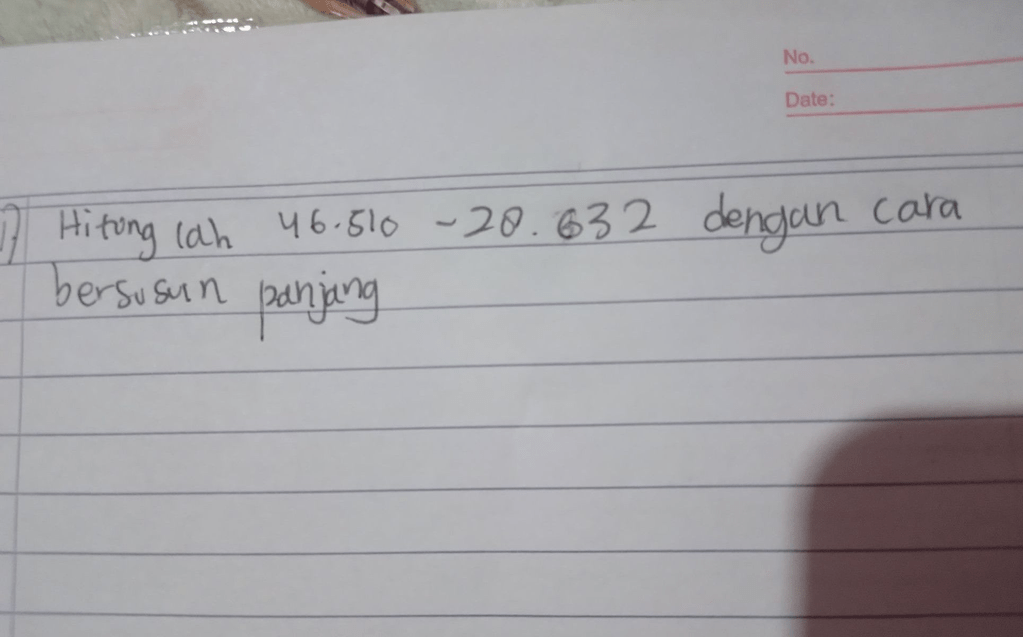 No.
Date:
1) Hitung lah 46.510 - 28.632 dengan cara
bersusun panjang